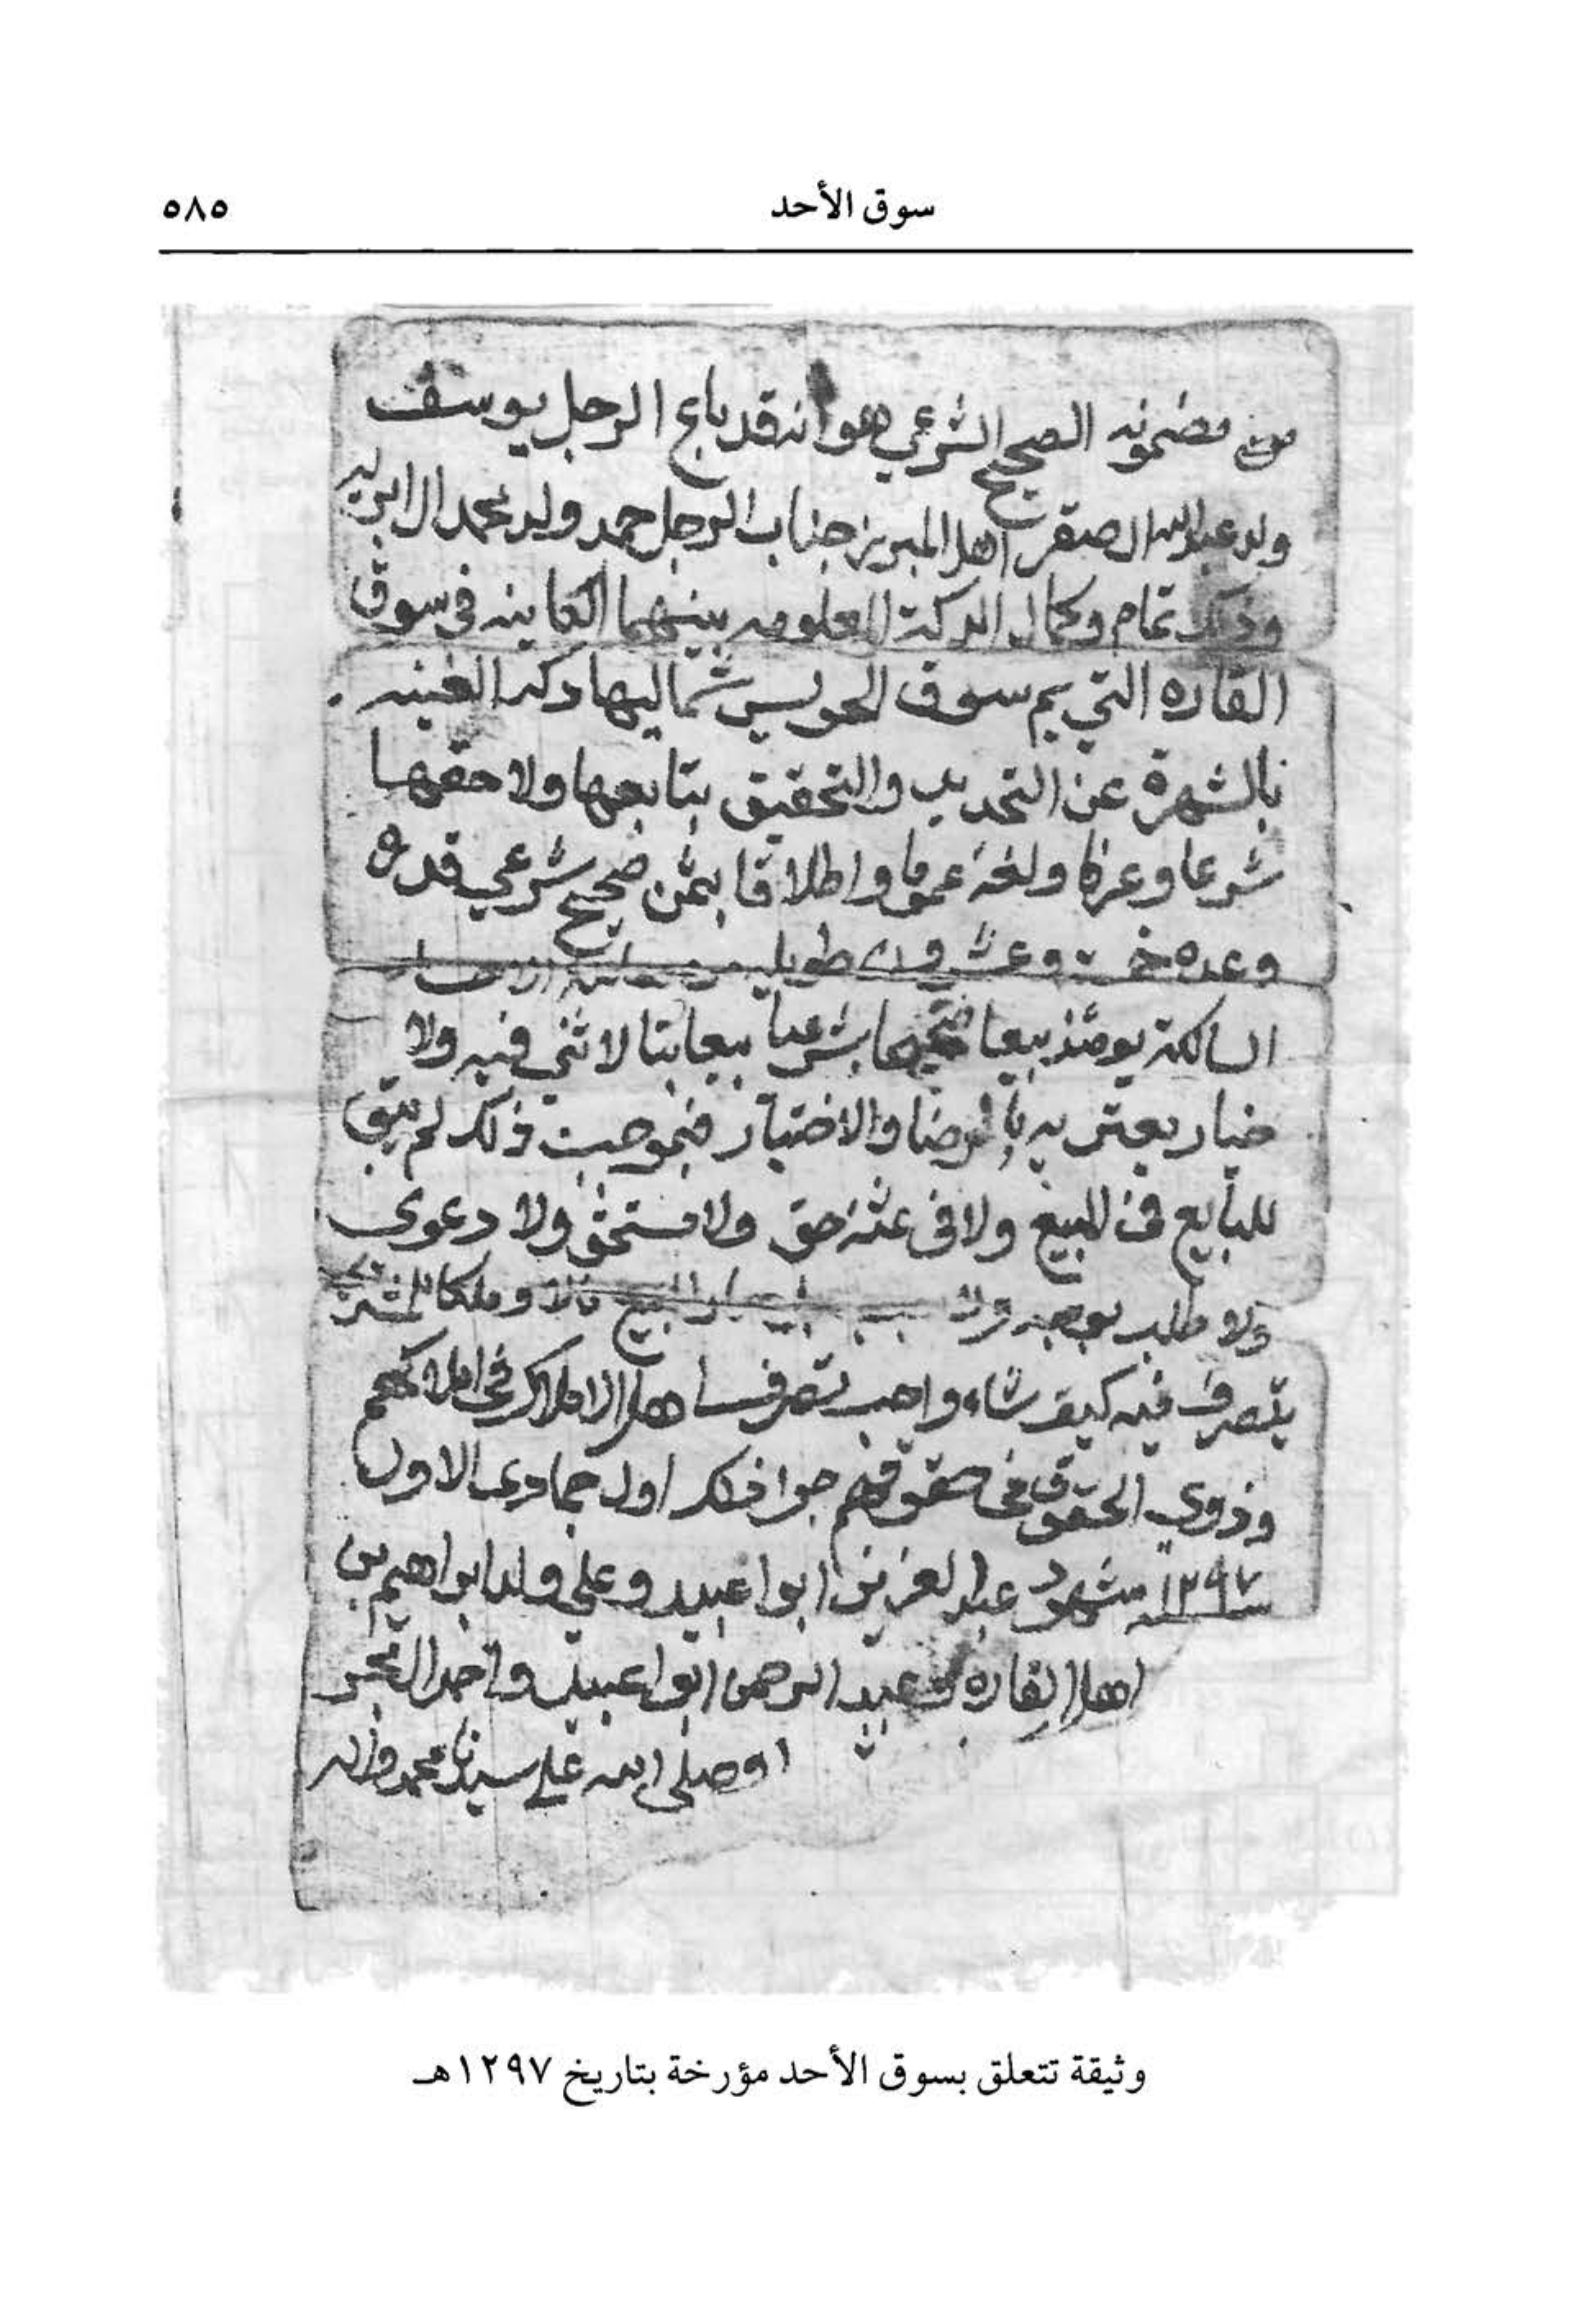 سوق الأحد
٥٨٥
مضمونه الصحيح الشرعي هو انه قد باع الرجل يوسف
ولد عبدالله ال صقر اهل المبرز جناب الرجل حمد ولد محمد ال
وذلك تمام وكمال الدكة المعلومه بينهما الكاينه في سوق
القاره التي يم سوق الحريم شماليها دكه
بالشهرة عن التحديد والتحقيق بتابعها ولاحقها
شرعا وعرفا ولغة عموما واطلاقا بثمن صحيح شرعي قدره
وعده خمسة وعشرون طويله
السالكة يومئذ بيعا صحيحا شرعيا بيعا بتا لا ثني فيه ولا
خيار يعتريه بالرضا والاختيار فبموجب ذلك لم يبق
للبايع في المبيع ولا في ثمنه حق ولا مستحق ولا دعوى
ولا طلب بوجه ولا سبب بل صار المبيع مالا وملكا للمشتري
يتصرف فيه كيف شاء واحب تصرف اهل الاملاك في املاكهم
وذوي الحقوق في حقوقهم جرا ذلك اول جمادى الاول
سنه ١٢٩٧ شهود عبدالعزيز ابو اعبيد وعلي ولد ابراهيم بن
اهل القاره عبد الرحمن ابو اعبيد واحمد
وصلى الله على سيدنا محمد واله
وثيقة تتعلق بسوق الأحد مؤرخة بتاريخ ١٢٩٧هـ